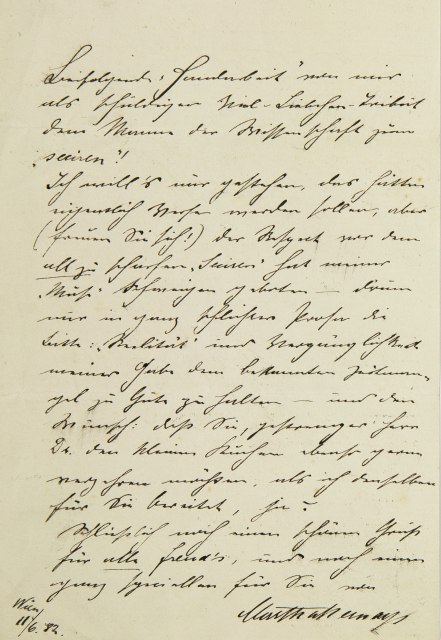 Beifolgende „Handarbeit" von mir
als schuldiger Viel-Liebchen-Tribut
dem Manne der Wissenschaft zum
„seciren"!
Ich will's nur gestehen, das hätten
eigentlich Verse werden sollen, aber
(freuen Sie sich!) der Respect vor dem
allzu scharfen „Seciren" hat meiner
„Muse" Schweigen geboten – drum
nur in ganz schlichter Prosa die
Bitte: „Realität" und Vergänglichkeit
meiner Gabe dem bekannten Zeitman-
gel zu Gute zu halten – und den
Wunsch: daß Sie, gestrenger Herr
Dr. den kleinen Kuchen ebenso gern
verzehren möchten, als ich denselben
für Sie bereitet, ja?
Schließlich noch einen schönen Gruß
für alle Freud's, und noch einen
ganz speciellen für Sie von
Martha Bernays
Wien,
11/6. 82.